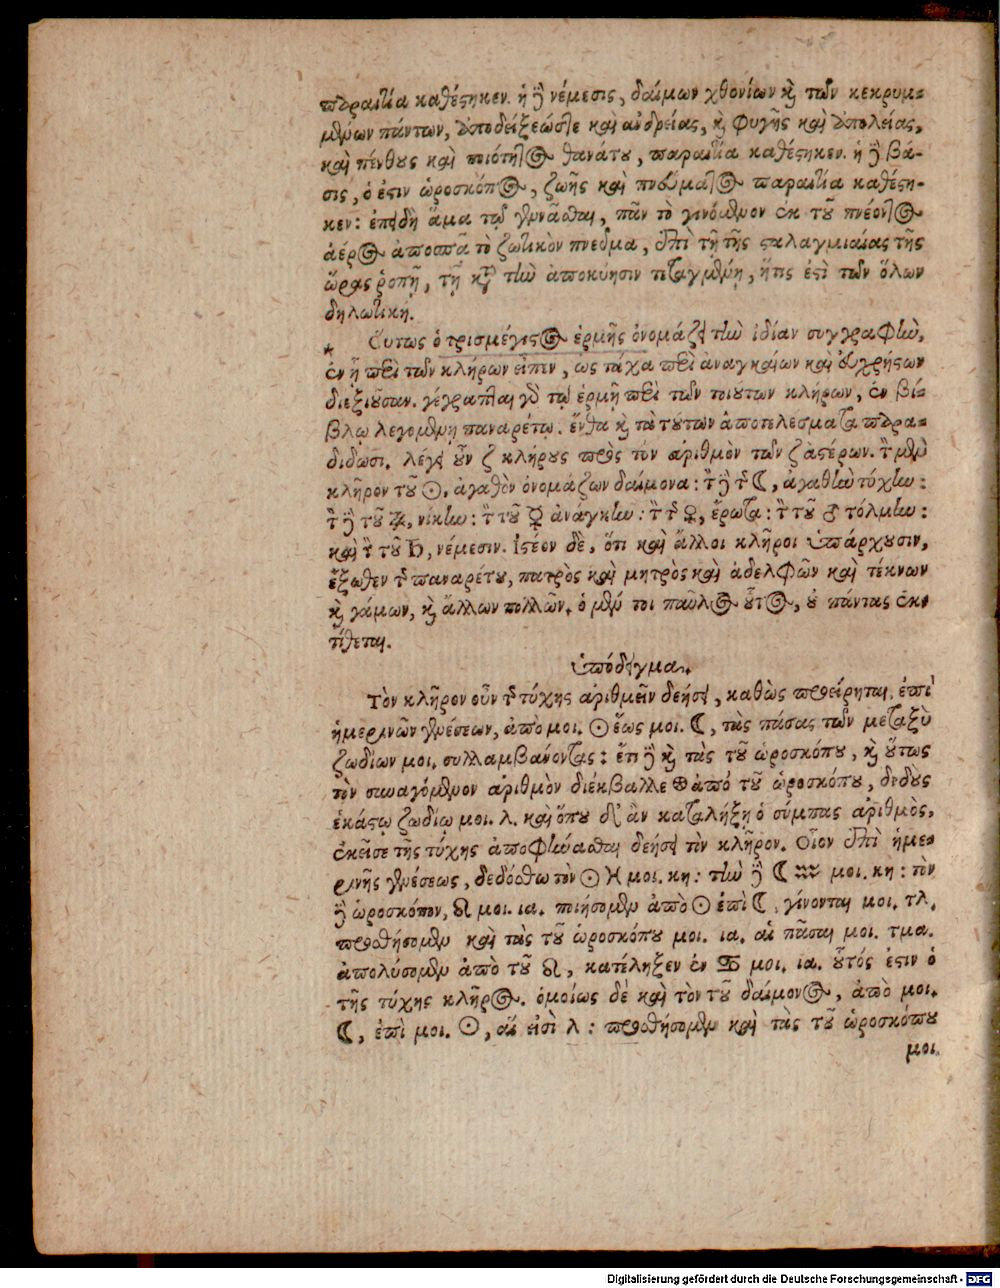 παραιτία καθέστηκεν. ἡ δὲ νέμεσις, δαίμων χθονίων καὶ τῶν κεκρυμ-
μένων πάντων, ἀποδείξεώς τε καὶ ἀνδρείας, καὶ φυγῆς καὶ ἀπωλείας,
καὶ πένθους καὶ ποιότητος θανάτου, παραιτία καθέστηκεν. ἡ δὲ βά-
σις, ὅ ἐστιν ὡροσκόπος, ζωῆς καὶ πνεύματος παραιτία καθέστη-
κεν: ἐπειδὴ ἅμα τῷ γεννᾶσθαι, πᾶν τὸ γινόμενον ἐκ τοῦ πνέοντος
ἀέρος ἀποσπᾶ τὸ ζωτικὸν πνεῦμα, ἐπὶ τῇ τῆς σταλαγμιαίας τῆς
ὥρας ῥοπῇ, τῇ κατὰ τὴν ἀποκύησιν τεταγμένῃ, ἥτις ἐστὶ τῶν ὅλων
δηλωτική.
* Οὕτως ὁ τρισμέγιστος ἑρμῆς ὀνομάζει τὴν ἰδίαν συγγραφὴν,
ἐν ᾗ περὶ τῶν κλήρων εἶπεν, ὡς τάχα περὶ ἀναγκαίων καὶ εὐχρήστων
διεξιοῦσαν. γέγραπται γὰρ τῷ ἑρμῇ περὶ τῶν τοιούτων κλήρων, ἐν βί-
βλῳ λεγομένῃ παναρέτῳ. ἔνθα καὶ τὰ τούτων ἀποτελέσματα παρα-
δίδωσι. λέγει οὖν ζ κλήρους πρὸς τὸν ἀριθμὸν τῶν ζ ἀστέρων. τὸν μὲν
κλῆρον τοῦ ☉, ἀγαθὸν ὀνομάζων δαίμονα: τὸν δὲ τῆς ☾, ἀγαθὴν τύχην:
τὸν δὲ τοῦ ♃, νίκην: τὸν τοῦ ☿ ἀνάγκην: τὸν τῆς ♀, ἔρωτα: τὸν τοῦ ♂ τόλμην:
καὶ τὸν τοῦ ♄, νέμεσιν. ἰστέον δὲ, ὅτι καὶ ἄλλοι κλῆροι ὑπάρχουσιν,
ἔξωθεν τῆς παναρέτου, πατρὸς καὶ μητρὸς καὶ ἀδελφῶν καὶ τέκνων
καὶ γάμων, καὶ ἄλλων πολλῶν. ὁ μέν τοι παῦλος οὗτος, οὐ πάντας ἐκ-
τίθεται.
ὑπόδειγμα.
Τὸν κλῆρον οὖν τῆς τύχης ἀριθμεῖν δεήσει, καθὼς προείρηται, ἐπὶ
ἡμερινῶν γενέσεων, ἀπὸ μοι. ☉ ἕως μοι. ☾, τὰς πάσας τῶν μεταξὺ
ζωδίων μοι. συλλαμβάνοντας: ἔτι δὲ καὶ τὰς τοῦ ὡροσκόπου, καὶ οὕτως
τὸν συναγόμενον ἀριθμὸν διέκβαλλε ⊕ ἀπὸ τοῦ ὡροσκόπου, δεδοὺς
ἑκάστῳ ζωδίῳ μοι. λ. καὶ ὅπου δ' ἂν καταλήξῃ ὁ σύμπας ἀριθμὸς,
ἐκεῖσε τῆς τύχης ἀποφήνασθαι δεήσει τὸν κλῆρον. Οἷον ἐπὶ ἡμε-
ρινῆς γενέσεως, δεδόσθω τὸν ☉ ♓ μοι. κη: τὴν δὲ ☾ ♒ μοι. κη: τὸν
δὲ ὡροσκόπον, ♌ μοι. ια. ποιήσομεν ἀπὸ ☉ ἐπὶ ☾, γίνονται μοι. τλ.
προσθήσομεν καὶ τὰς τοῦ ὡροσκόπου μοι. ια. αἱ πᾶσαι μοι. τμα.
ἀπολύσομεν ἀπὸ τοῦ ♌, κατέληξεν ἐν ♋ μοι. ια. οὗτός ἐστιν ὁ
τῆς τύχης κλῆρος. ὁμοίως δὲ καὶ τὸν τοῦ δαίμονος, ἀπὸ μοι.
☾, ἐπὶ μοι. ☉, αἵ εἰσὶ λ: προσθήσομεν καὶ τὰς τοῦ ὡροσκόπου
μοι.
Digitalisierung gefördert durch die Deutsche Forschungsgemeinschaft - DFG